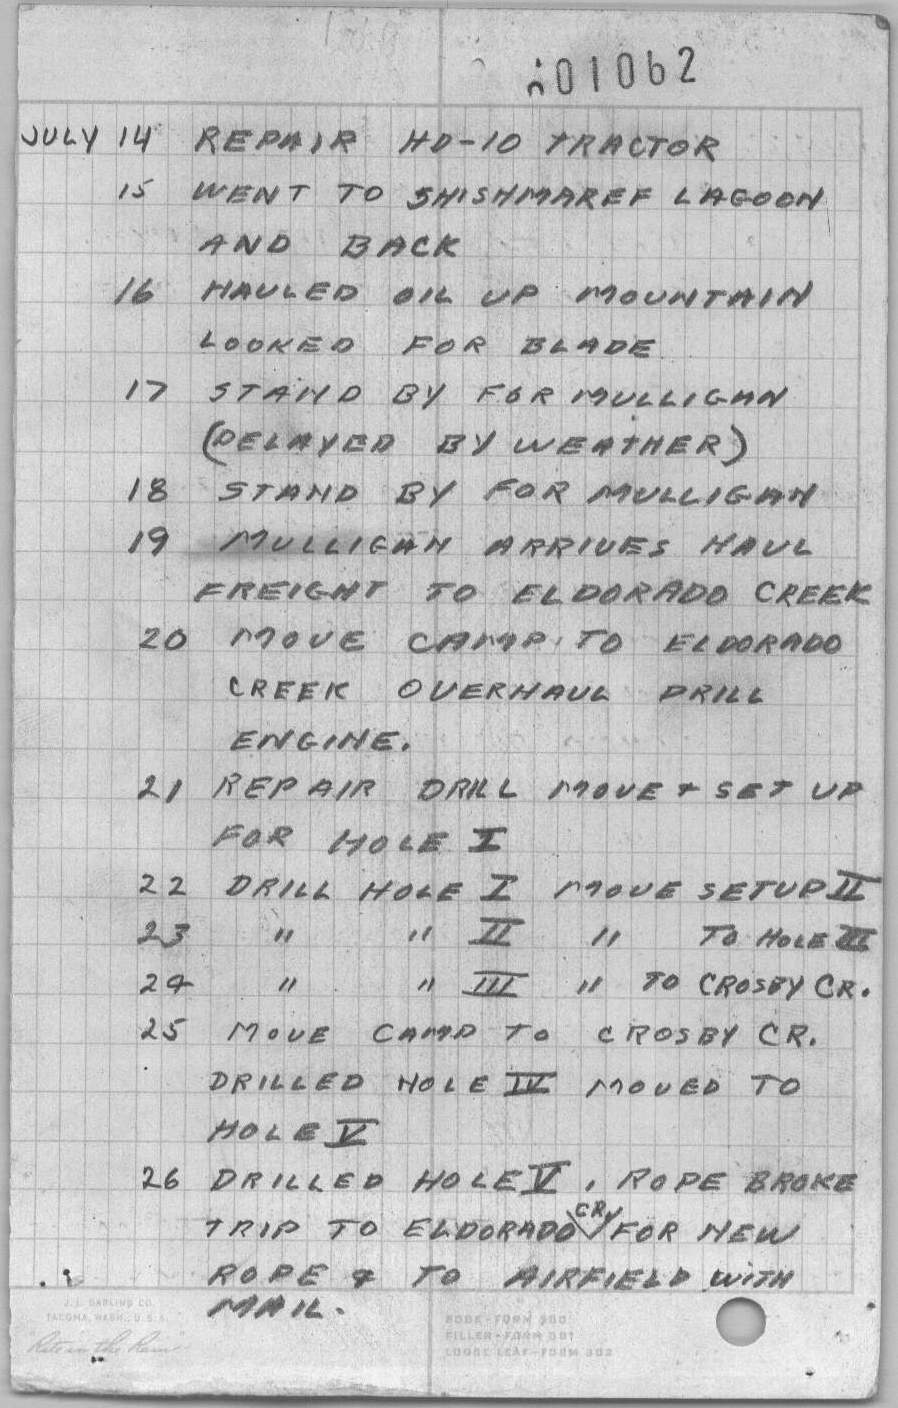 001062
JULY 14 REPAIR HD-10 TRACTOR
15 WENT TO SHISHMAREF LAGOON
AND BACK
16 HAULED OIL UP MOUNTAIN
LOOKED FOR BLADE
17 STAND BY FOR MULLIGAN
(DELAYED BY WEATHER)
18 STAND BY FOR MULLIGAN
19 MULLIGAN ARRIVES HAUL
FREIGHT TO ELDORADO CREEK
20 MOVE CAMP TO ELDORADO
CREEK OVERHAUL DRILL
ENGINE.
21 REPAIR DRILL MOVE + SET UP
FOR HOLE I
22 DRILL HOLE I MOVE SETUP II
23 " " II " TO HOLE III
24 " " III " TO CROSBY CR.
25 MOVE CAMP TO CROSBY CR.
DRILLED HOLE IV MOVED TO
HOLE V
26 DRILLED HOLE V, ROPE BROKE
TRIP TO ELDORADO CR FOR NEW
ROPE & TO AIRFIELD WITH
MAIL.
J. L. DARLING CO.
TACOMA, WASH., U.S.A.
"Rite in the Rain"
BOOK-FORM 380
FILLER-FORM 381
LOOSE LEAF-FORM 382